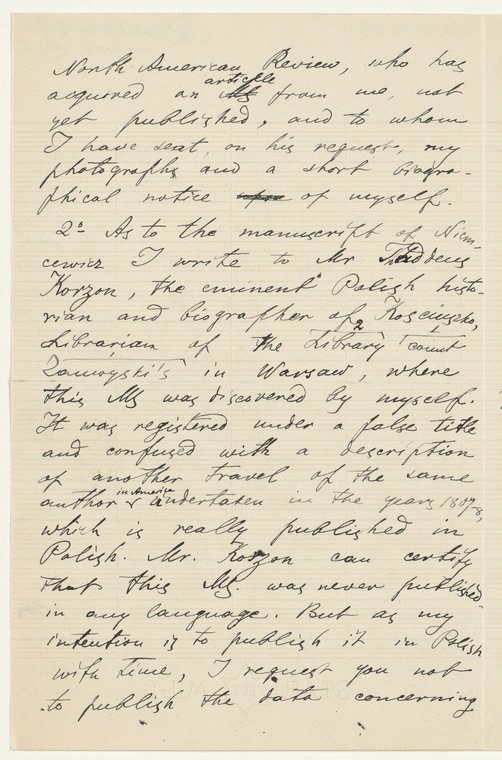 North American Review, who has
article
acquired an Ms from me, not
yet published, and to whom
I have sent, on his request, my
photographs and a short biogra-
phical notice upon of myself.
2º As to the manuscript of Niem-
cewicz I write to Mr Thaddeus
Korzon, the eminent Polish histo-
rian and biographer of Kosciuszko,
Librarian of the Library Count
Zamoyski's in Warsaw, where
this Ms was discovered by myself.
It was registered under a false title
and confused with a description
of another travel of the same
in America
author undertaken in the years 1807-8,
which is really published in
Polish. Mr. Korzon can certify
that this Ms. was never published
in any language. But as my
intention is to publish it in Polish
with time, I request you not
to publish the data concerning